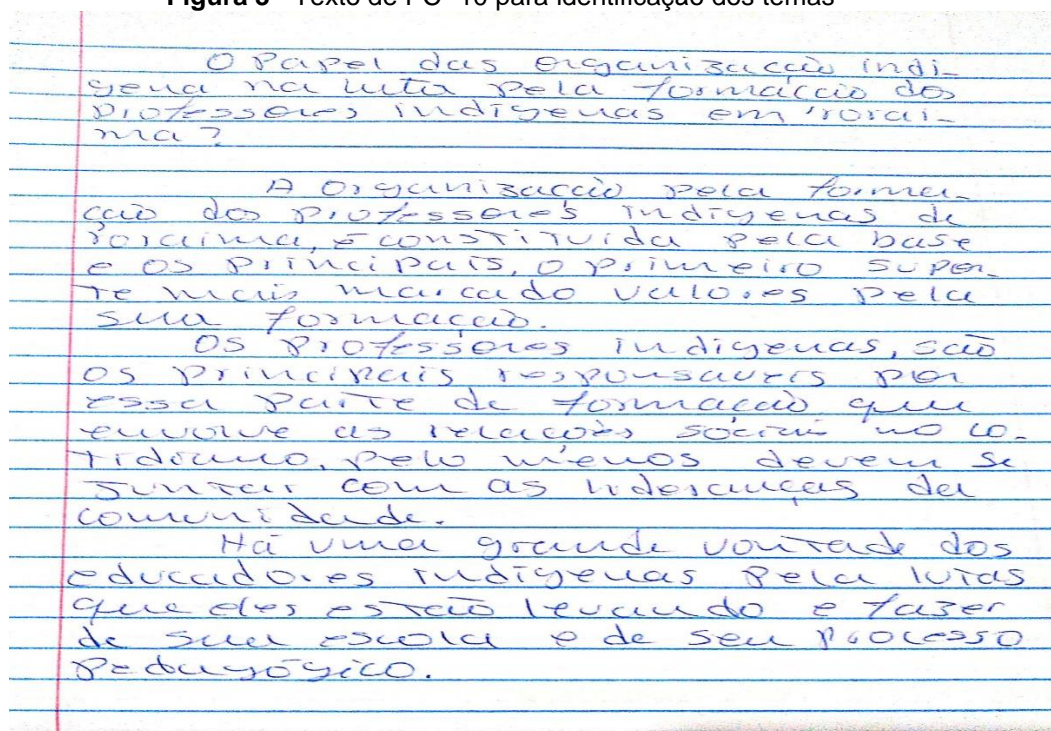 Figura 3 - Texto de PC- 10 para identificação dos temas
O Papel das organizacão indi-
gena na luta pela formaccão dos
professores indígenas em rorai-
ma?
A organizaccão pela forma-
ção dos professores indígenas de
roraima, é constituida pela base
e os principais, o primeiro super-
te mais marcado valores pela
sua formação.
Os professores indigenas, são
os principais responsaveis por
essa parte de formação que
envolve as relacões sociais no co-
tidiano, pelo menos devem se
juntar com as lideranças da
comunidade.
Há uma grande vontade dos
educadores indígenas pela lutas
que eles estão levando e fazer
de sua escola e de seu processo
pedagógico.